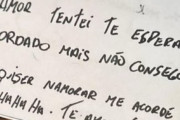 AMOR TENTEI TE ESPERA
ORDADO MAIS NÃO CONSEGU
QUISER NAMORAR ME ACORDE
HAHAHA. TE